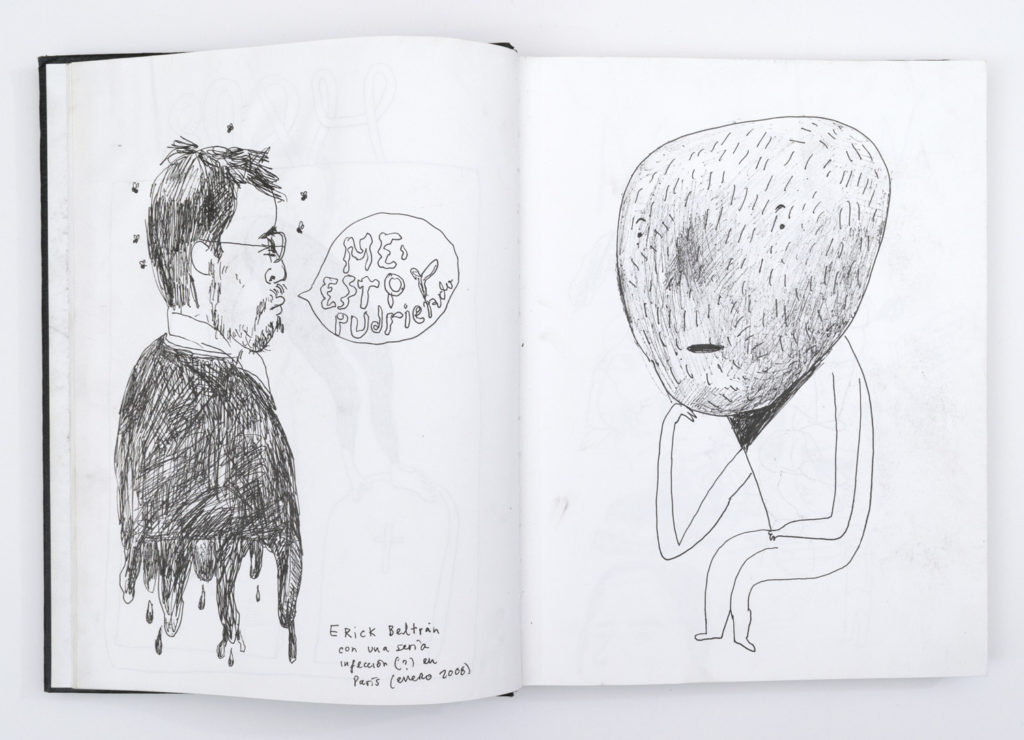 ME
ESTOY
PUdriendo
ERICK Beltrán
con una seria
infección (?) en
París (enero 2008)